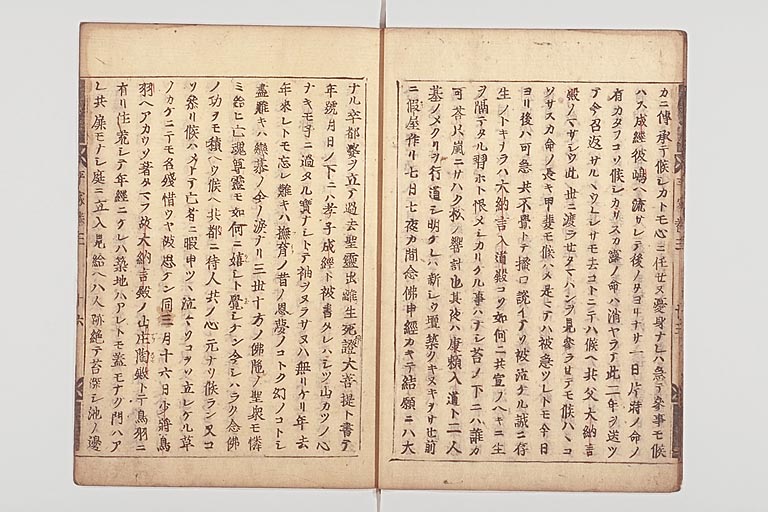 カニ傳承テ候シカトモ心ニ任セヌ憂身ナレハ急テ參事モ候
ハス成經彼嶋ヘ流サレテ後ノタヨリナサ一日片時ノ命ノ
有カタフコソ候シカ リスカ露ノ命ハ消ヤラテ此二年ヲ送ツ
テ今召返サルヽウレシサモ去コトニテハ候ヘ共父大納言
殿ノマサシウ此世ニ渡ラせ タマハンヲ見參ラせテモ候ハヽコ
ソサスカ命ノ長キ甲斐モ候ハメ是マテハ被急ツレトモ今日
ヨリ後ハ可急共不覺トテ掻口説イテソ被泣ケル誠ニ存
生ノトキナラハ大納言入道殿コソ如何ニ共宣フヘキニ生
ヲ隔テタル習ホト恨メシカリケル事ハナシ苔ノ下ニハ誰カ
可答只嵐ニサハク松ノ響計也其夜ハ康頼入道ト二人
墓ノメクリヲ行道シ明ケレハ新シウ壇築クキヌキせサせ前
ニ假屋作リ七日七夜カ間念佛申經カキテ結願ニハ大
ナル卒都婆ヲ立テ過去聖靈出離生死證大菩提ト書テ
年號月日ノ下ニハ孝子成經ト被書タレハシツ山カツノ心
ナキモ子ニ過タル寶ナシトテ袖ヲヌラサヌハ無リケリ年去
年來レトモ忘レ難キハ撫育ノ昔ノ恩夢ノコトク幻ノコトシ
盡難キハ戀慕ノ今ノ涙ナリ三世十方ノ佛陀ノ聖衆モ憐
ミ給ヒ亡魂尊靈モ如何ニ嬉シト覺シケン今シハラク念佛
ノ功ヲモ積ヘウ候ヘ共都ニ待人共ノ心元ナウ候ラン又コ
ソ參リ候ハメトテ亡者ニ暇申ツヽ泣々ソコヲソ立レケル草
ノカケニテモ名殘惜ウヤ被思ケン同三月十六日少將鳥
羽ヘアカウソ着タマフ故大納言殿ノ山庄 トテ鳥羽ニ
有リ住荒シテ年經ニケレハ築地ハアレトモ蓋モナク門ハア
レ共扉モナシ庭ニ立入見給ヘハ人跡絶テ苔深シ池ノ邊